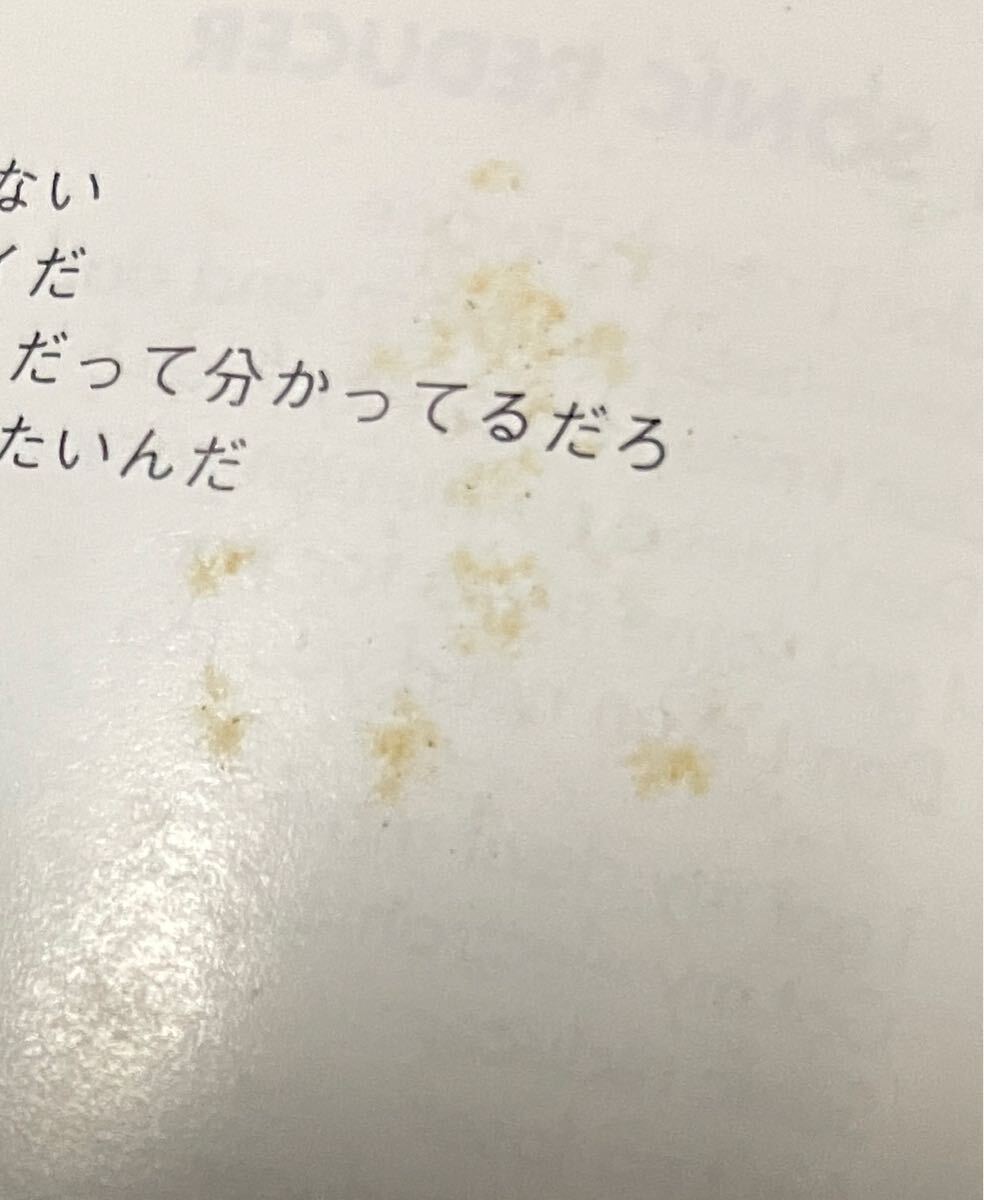 SONIC REDUCER
ない
イだ
だって分かってるだろ
たいんだ